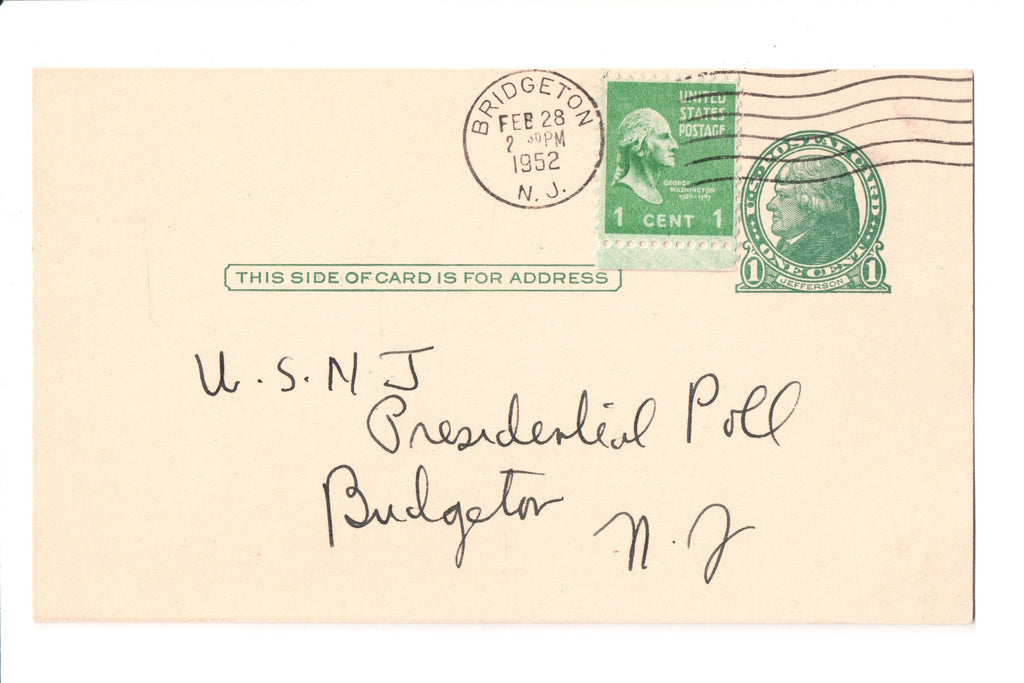 BRIDGETON
FEB 28
2 30 PM
1952
N. J.
UNITED
STATES
POSTAGE
GEORGE
WASHINGTON
1 CENT 1
U.S. POSTAL CARD
ONE CENT
1 JEFFERSON 1
THIS SIDE OF CARD IS FOR ADDRESS
U. S. N J
Presidential Poll
Bridgeton
N. J